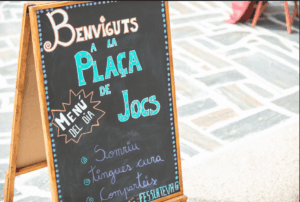 BENVIGUTS
A LA
PLAÇA
DE
JOCS
MENÚ
DEL DIA
Somriu
tingues cura
Comparteix